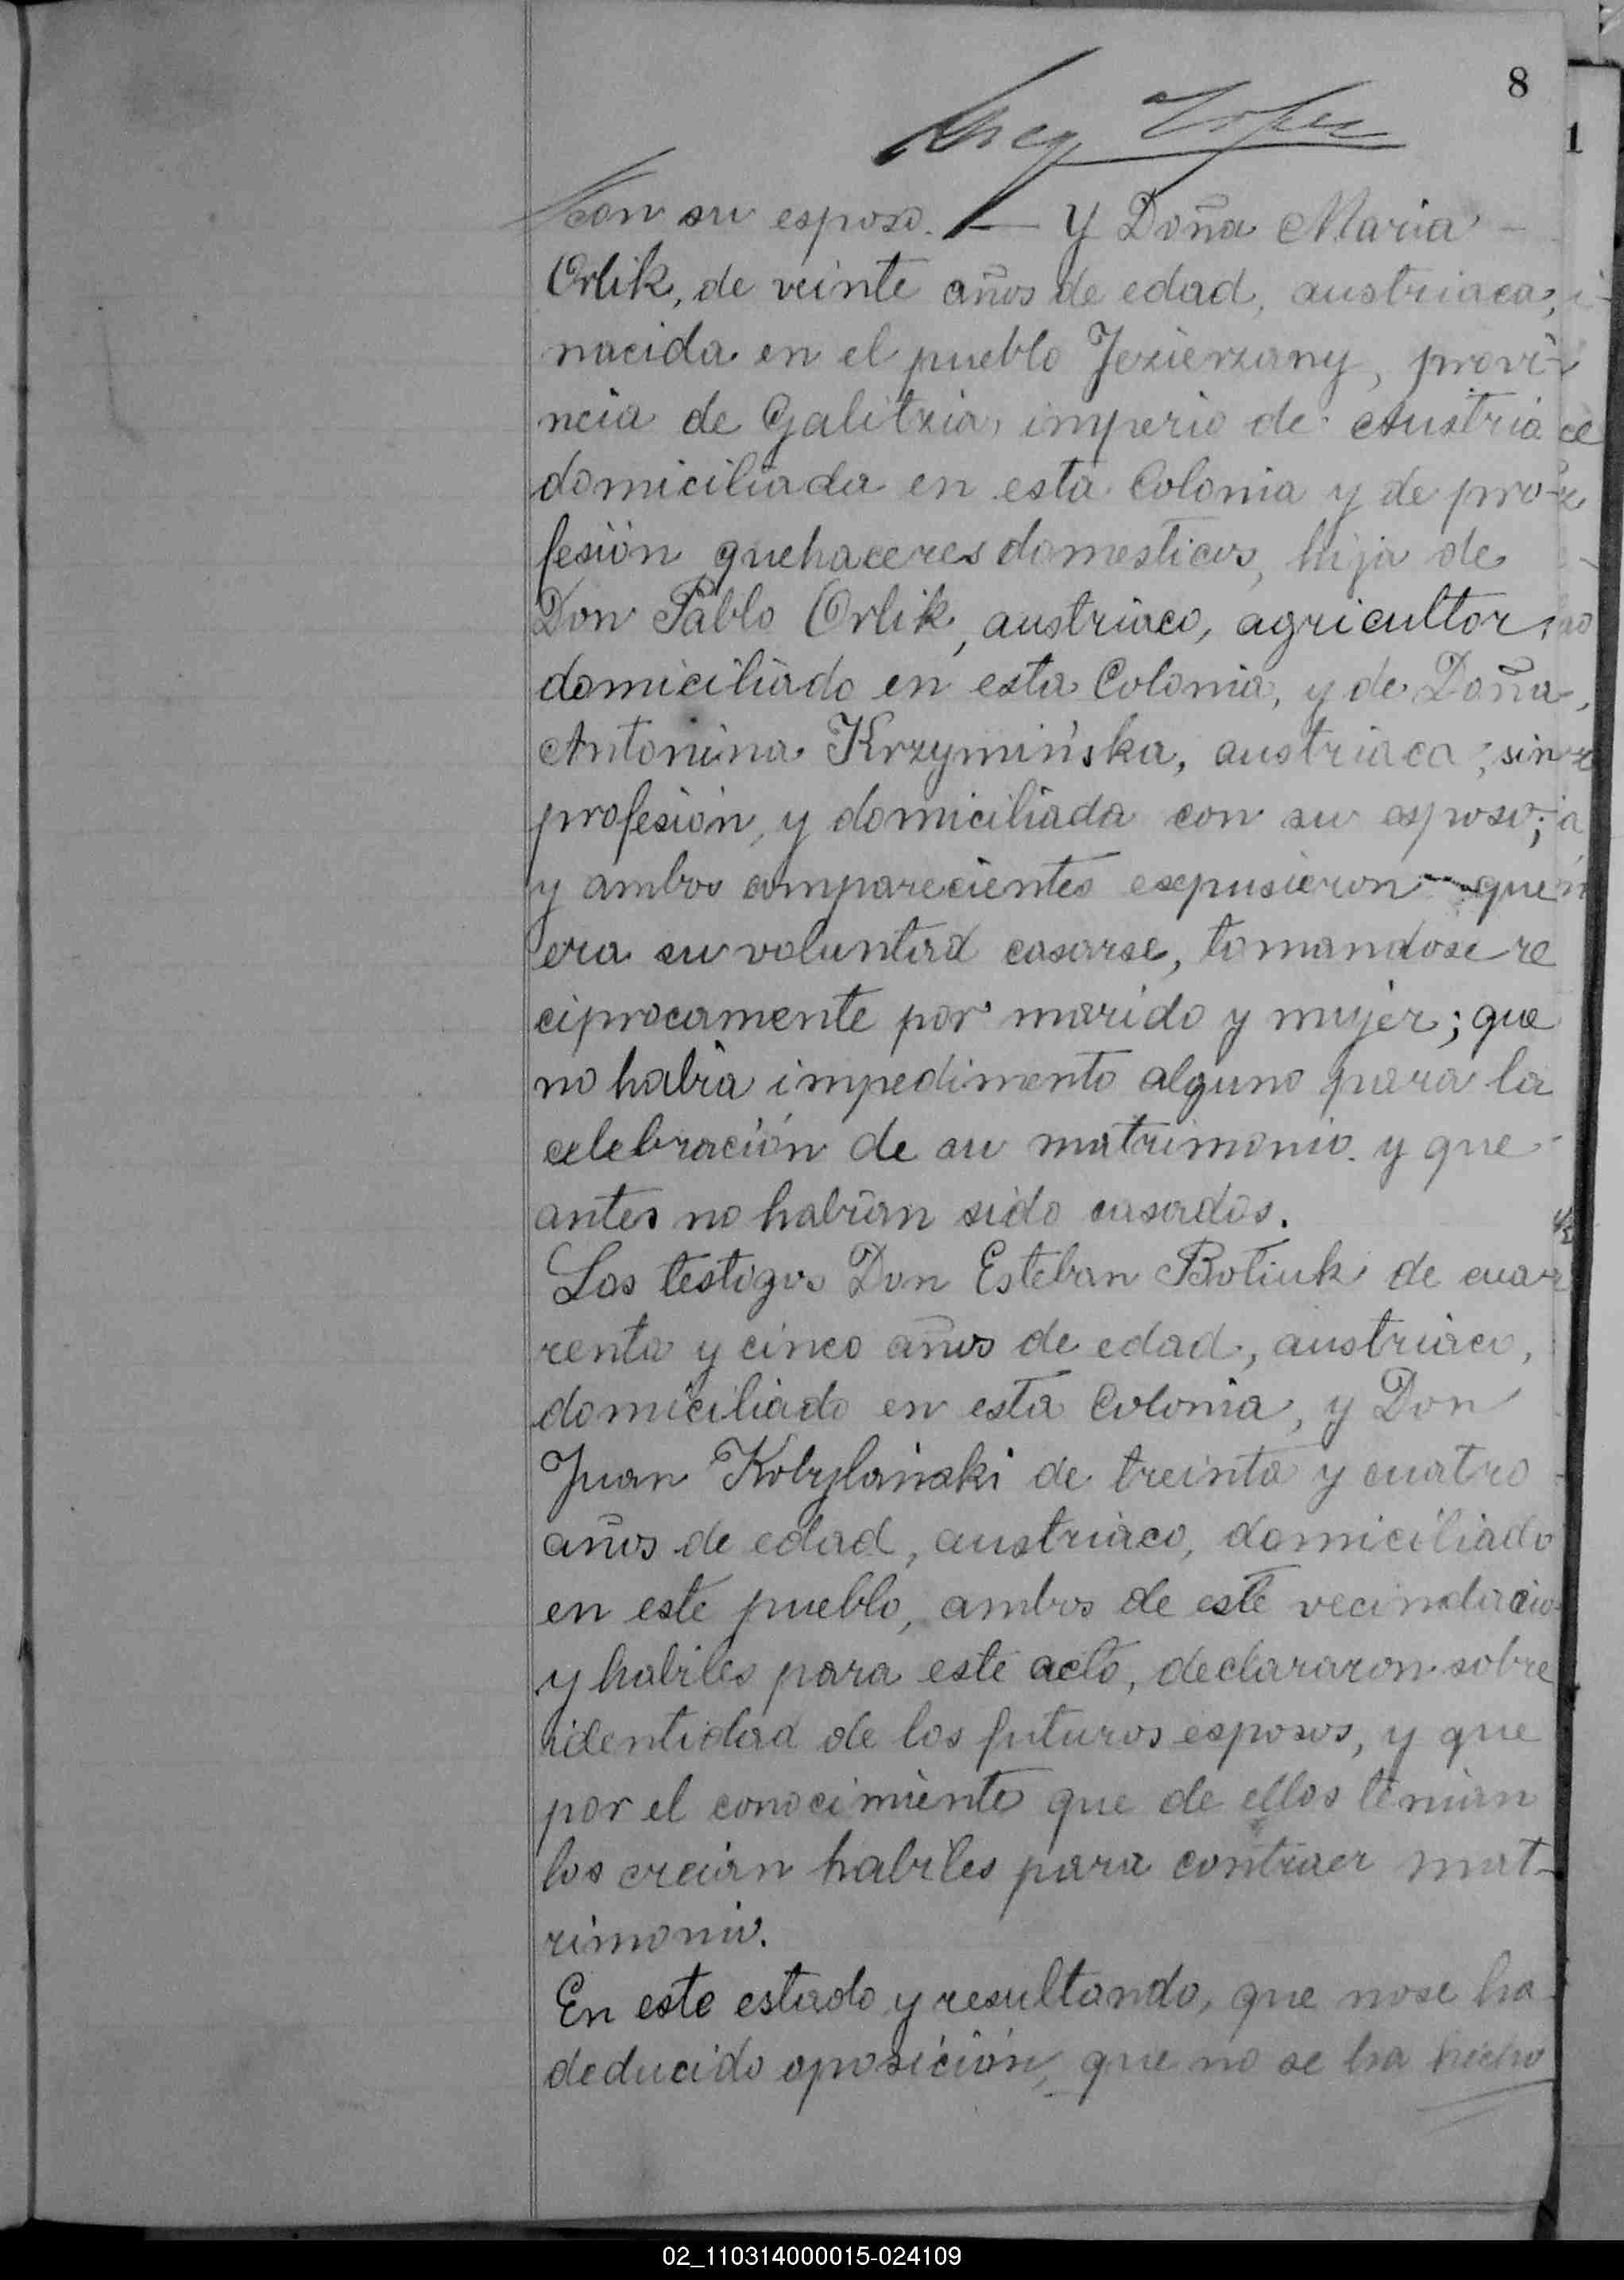 8
1
con su esposo. — Y Doña Maria
Orlik, de veinte años de edad, austriaca,
nacida en el pueblo Jezierzany, provi-
ncia de Galitzia, imperio de Austria
domiciliada en esta Colonia y de pro-
fesión quehaceres domesticos, hija de
Don Pablo Orlik, austriaco, agricultor,
domiciliado en esta Colonia, y de Doña
Antonina Krzymińska, austriaca, sin
profesión, y domiciliada con su esposo;
y ambos comparecientes expusieron que
era su voluntad casarse, tomandose re
ciprocamente por marido y mujer; que
no habia impedimento alguno para la
celebración de su matrimonio y que
antes no habian sido casados.
Los testigos Don Esteban Botiuk de cua-
renta y cinco años de edad, austriaco,
domiciliado en esta Colonia, y Don
Juan Kobylański de treinta y cuatro
años de edad, austriaco, domiciliado
en este pueblo, ambos de este vecindario
y habiles para este acto, declararon sobre
identidad de los futuros esposos, y que
por el conocimiento que de ellos tenian
los creian habiles para contraer mat-
rimonio.
En este estado y resultando, que no se ha
deducido oposición, que no se ha hecho
02_110314000015-024109